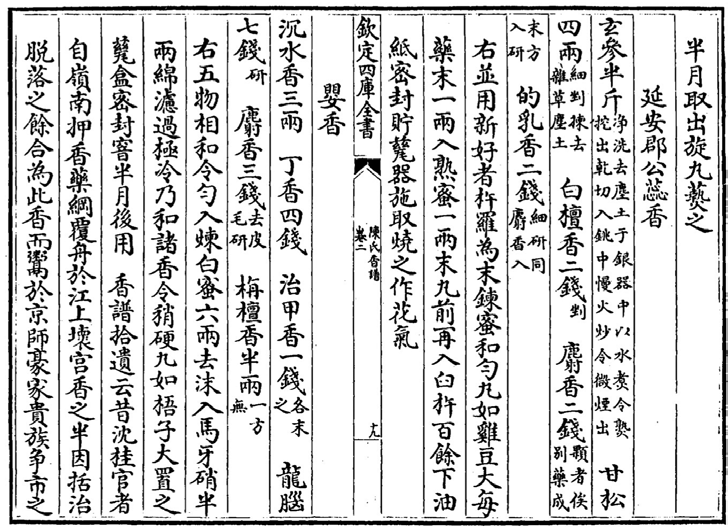 半月取出旋丸爇之
延安郡公蕊香
玄參半斤淨洗去塵土于銀器中以水煑令熟挖出乾切入銚中慢火炒令微煙出 甘松
四兩細剉揀去雜草塵土 白檀香二錢剉 麝香二錢顆者俟別藥成
末方入研 的乳香二錢細研同麝香入
右並用新好者杵羅為末鍊蜜和勻丸如雞豆大每
藥末一兩入熟蜜一兩末丸前再入臼杵百餘下油
紙密封貯甆器旋取燒之作花氣
欽定四庫全書 陳氏香譜 卷三 十九
嬰香
沉水香三兩 丁香四錢 治甲香一錢各末之 龍腦
七錢研 麝香三錢去皮毛研 栴檀香半兩一方無
右五物相和令勻入煉白蜜六兩去沫入馬牙硝半
兩綿濾過極冷乃和諸香令稍硬丸如梧子大置之
甆盒密封窨半月後用 香譜拾遺云昔沈桂官者
自嶺南押香藥綱覆舟於江上壞宫香之半因括治
脱落之餘合為此香而鬻於京師豪家貴族争市之